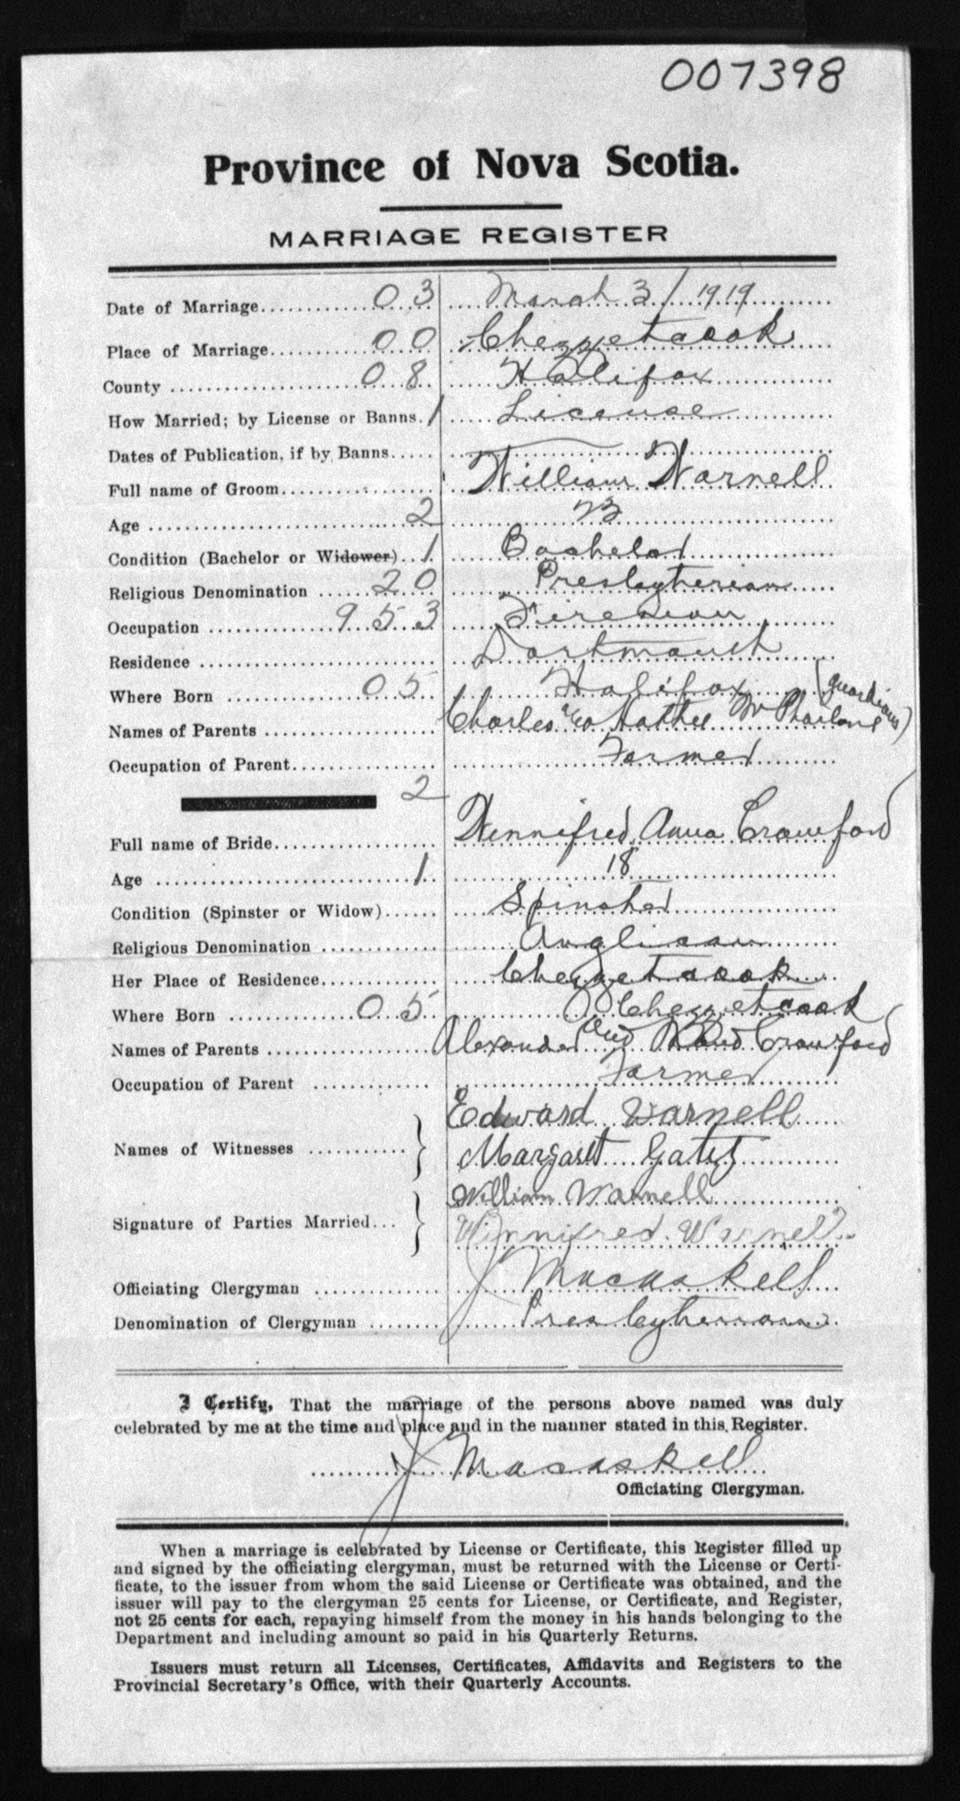 007398
Province of Nova Scotia.
MARRIAGE REGISTER
Date of Marriage 03 March 3/1919
Place of Marriage 00 Chezzetcook
County 08 Halifax
How Married; by License or Banns. 1 License
Dates of Publication, if by Banns
Full name of Groom William Warnell
Age 2 23
Condition (Bachelor or Widower) 1 Bachelor
Religious Denomination 20 Presbytherian
Occupation 953 Fireman
Residence Dartmouth
Where Born 05 Halifax
Names of Parents Charles & Hattie McPharlane (guardians)
Occupation of Parent Farmer
2
Full name of Bride Wennifred Anna Crawford
Age 1 18
Condition (Spinster or Widow) Spinster
Religious Denomination Anglican
Her Place of Residence Chezzetcook
Where Born 05 Chezzetcook
Names of Parents Alexander and Crawford
Occupation of Parent Farmer
Names of Witnesses } Edward Warnell
Margaret Gates
Signature of Parties Married } William Warnell
Winnifred Warnell
Officiating Clergyman J Macaskell
Denomination of Clergyman Presbytherian
I Certify, That the marriage of the persons above named was duly
celebrated by me at the time and place and in the manner stated in this Register.
J Macaskell
Officiating Clergyman.
When a marriage is celebrated by License or Certificate, this Register filled up
and signed by the officiating clergyman, must be returned with the License or Certi-
ficate, to the issuer from whom the said License or Certificate was obtained, and the
issuer will pay to the clergyman 25 cents for License, or Certificate, and Register,
not 25 cents for each, repaying himself from the money in his hands belonging to the
Department and including amount so paid in his Quarterly Returns.
Issuers must return all Licenses, Certificates, Affidavits and Registers to the
Provincial Secretary's Office, with their Quarterly Accounts.